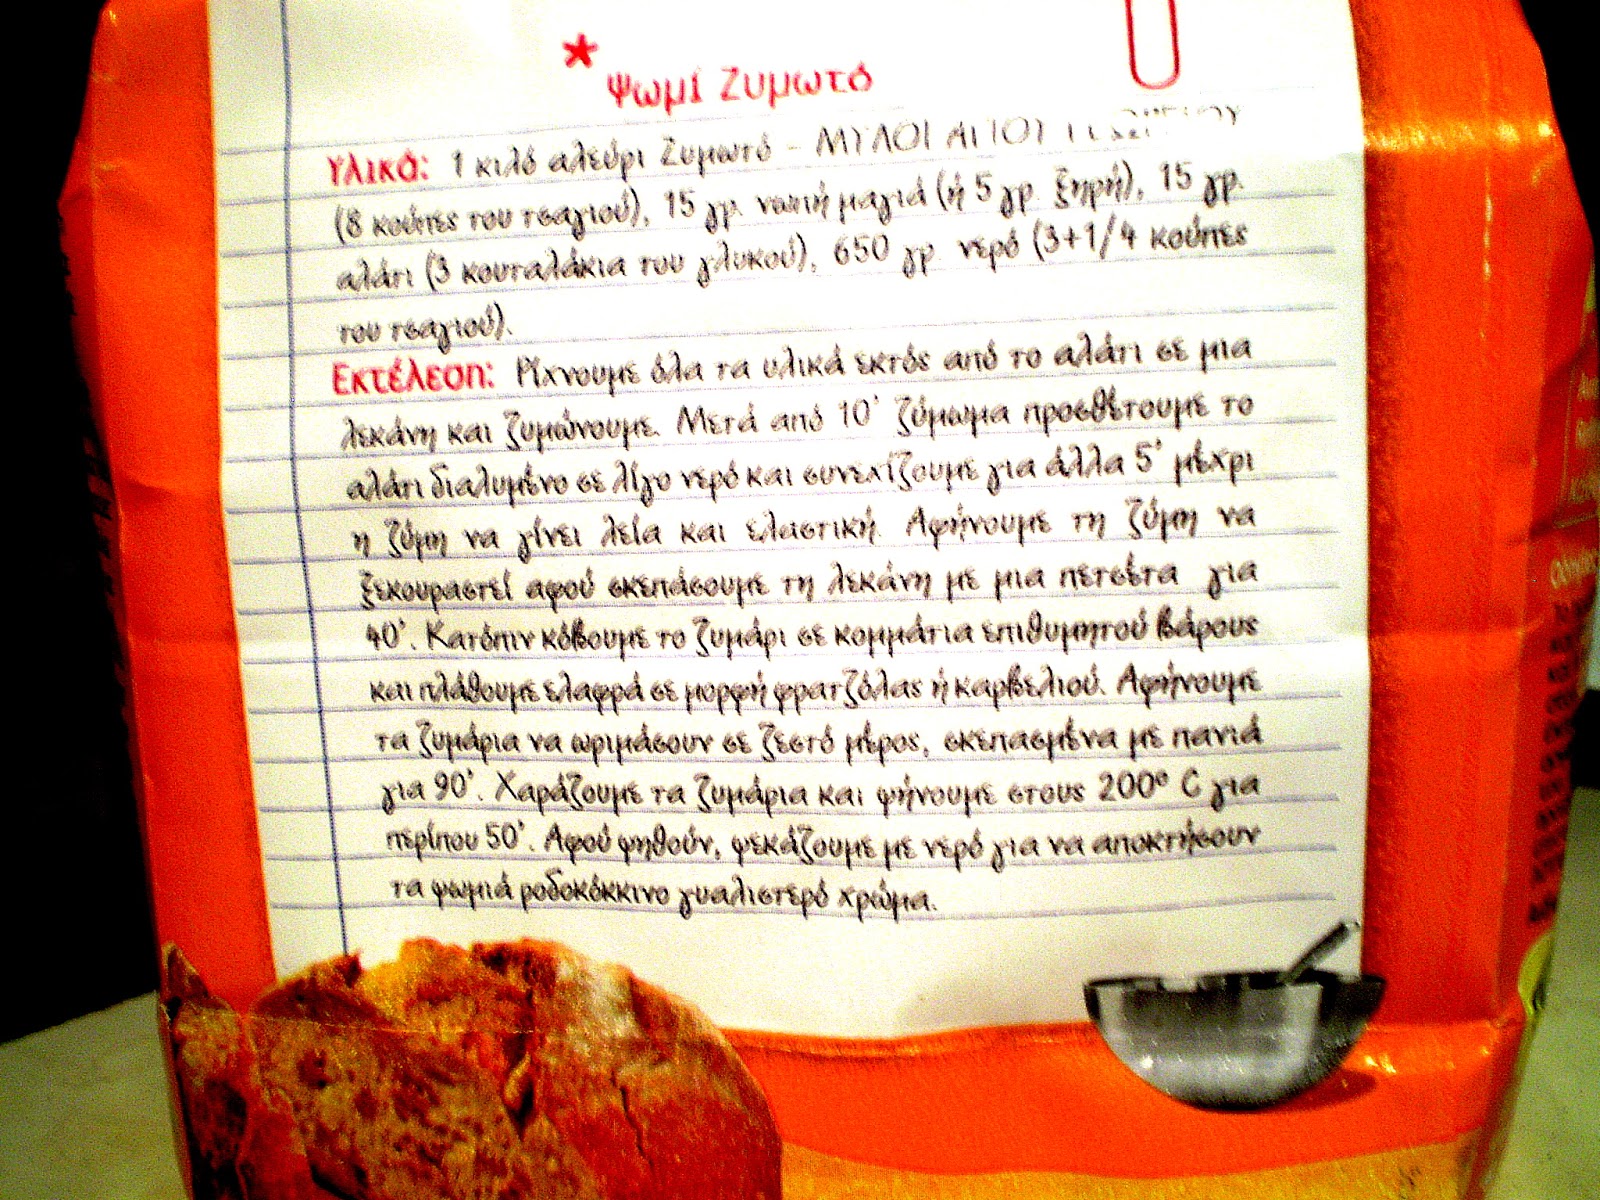 * Ψωμί Ζυμωτό
Υλικά: 1 κιλό αλεύρι Ζυμωτό - ΜΥΛΟΙ ΑΓΙΟΥ
(8 κούπες του τσαγιού), 15 γρ. νωπή μαγιά (ή 5 γρ. ξηρή), 15 γρ.
αλάτι (3 κουταλάκια του γλυκού), 650 γρ. νερό (3+1/4 κούπες
του τσαγιού).
Εκτέλεση: Ρίχνουμε όλα τα υλικά εκτός από το αλάτι σε μια
λεκάνη και ζυμώνουμε. Μετά από 10' ζύμωμα προσθέτουμε το
αλάτι διαλυμένο σε λίγο νερό και συνεχίζουμε για άλλα 5' μέχρι
η ζύμη να γίνει λεία και ελαστική. Αφήνουμε τη ζύμη να
ξεκουραστεί αφού σκεπάσουμε τη λεκάνη με μια πετσέτα για
40'. Κατόπιν κόβουμε το ζυμάρι σε κομμάτια επιθυμητού βάρους
και πλάθουμε ελαφρά σε μορφή φρατζόλας ή καρβελιού. Αφήνουμε
τα ζυμάρια να ωριμάσουν σε ζεστό μέρος, σκεπασμένα με πανιά
για 90'. Χαράζουμε τα ζυμάρια και ψήνουμε στους 200° C για
περίπου 50'. Αφού ψηθούν, ψεκάζουμε με νερό για να αποκτήσουν
τα ψωμιά ροδοκόκκινο γυαλιστερό χρώμα.